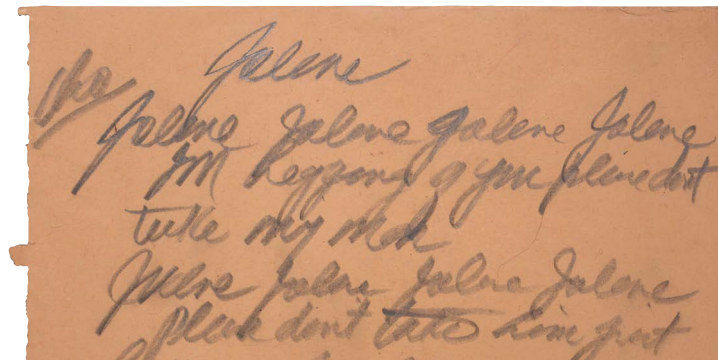 Jolene
cho
Jolene Jolene Jolene Jolene
Im begging of you please dont
take my man
Jolene Jolene Jolene Jolene
Please dont take him just